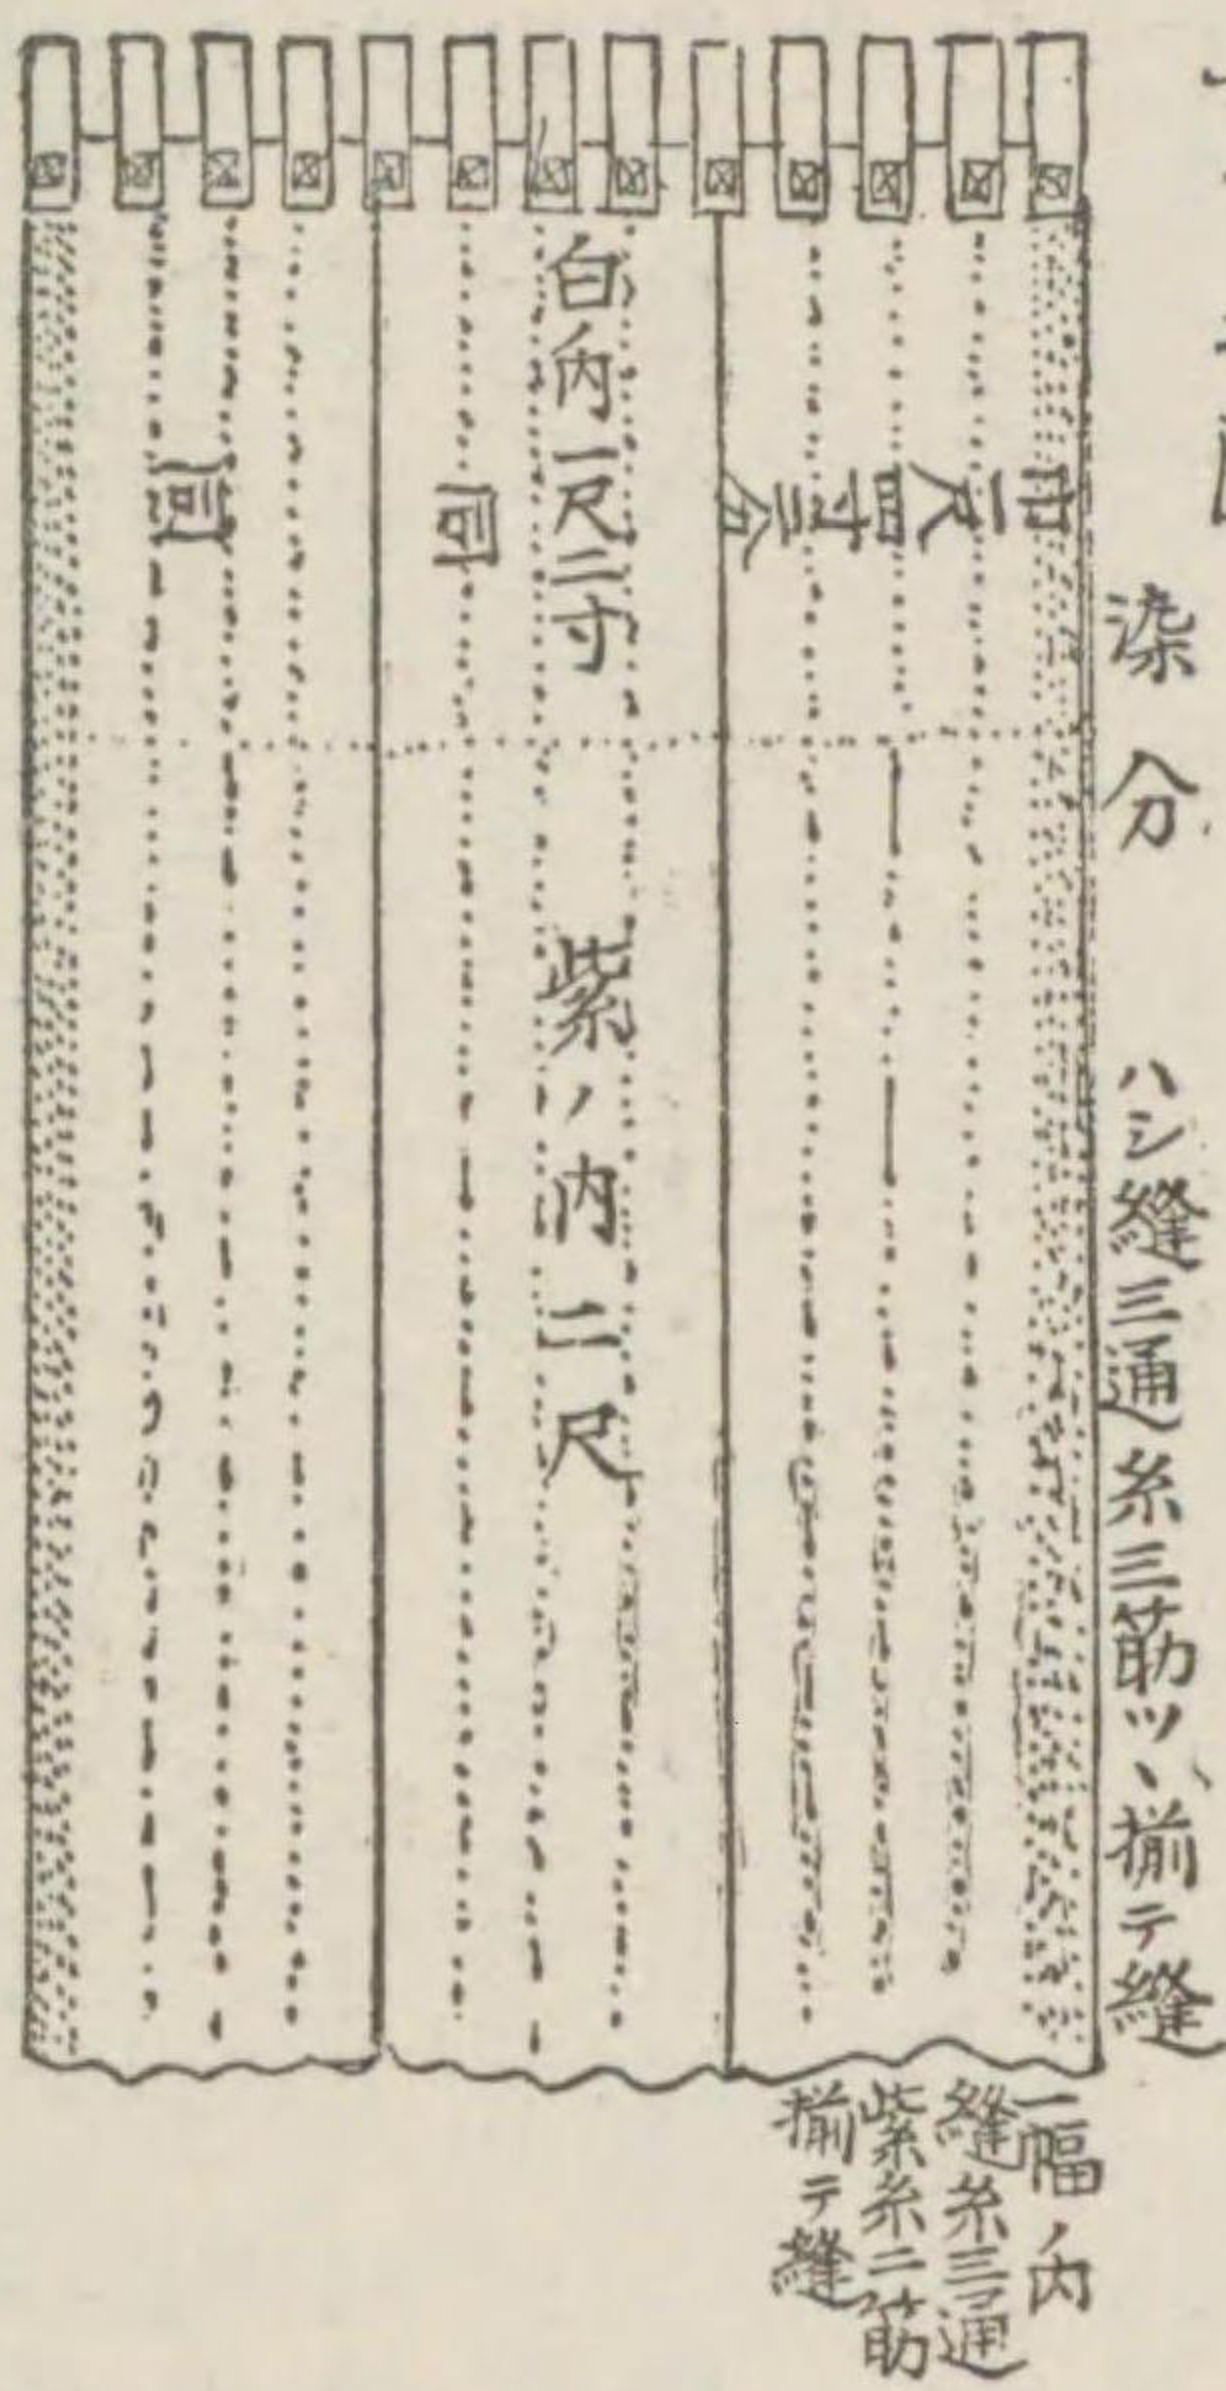 染分
ハシ縫三通糸三筋ツヽ揃テ縫
巾一尺四寸三分
白ノ内一尺二寸
紫ノ内二尺
同
同
一幅ノ内
縫糸三通
紫糸二筋
揃テ縫